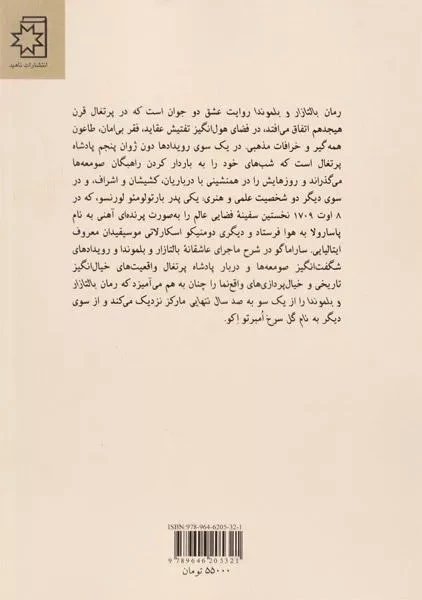 انتشارات ناهید
رمان بالتازار و بلموندا روایت عشق دو جوان است که در پرتغال قرن
هیجدهم اتفاق می‌افتد، در فضای هول‌انگیز تفتیش عقاید، فقر بی‌امان، طاعون
همه‌گیر و خرافات مذهبی. در یک سوی رویدادها دون ژوان پنجم پادشاه
پرتغال است که شب‌های خود را به باردار کردن راهبگان صومعه‌ها
می‌گذراند و روزهایش را در همنشینی با درباریان، کشیشان و اشراف، و در
سوی دیگر دو شخصیت علمی و هنری، یکی پدر بارتولومئو لورنسو، که در
۸ اوت ۱۷۰۹ نخستین سفینهٔ فضایی عالم را به‌صورت پرنده‌ای آهنی به نام
پاسارولا به هوا فرستاد و دیگری دومنیکو اسکارلاتی موسیقیدان معروف
ایتالیایی. ساراماگو در شرح ماجرای عاشقانهٔ بالتازار و بلموندا و رویدادهای
شگفت‌انگیز صومعه‌ها و دربار پادشاه پرتغال واقعیت‌های خیال‌انگیز
تاریخی و خیال‌پردازی‌های واقع‌نما را چنان به هم می‌آمیزد که رمان بالتازار
و بلموندا را از یک سو به صد سال تنهایی مارکز نزدیک می‌کند و از سوی
دیگر به نام گل سرخ اُمبرتو اِکو.
ISBN:978-964-6205-32-1
9 789646 205321
۵۵۰۰۰ تومان